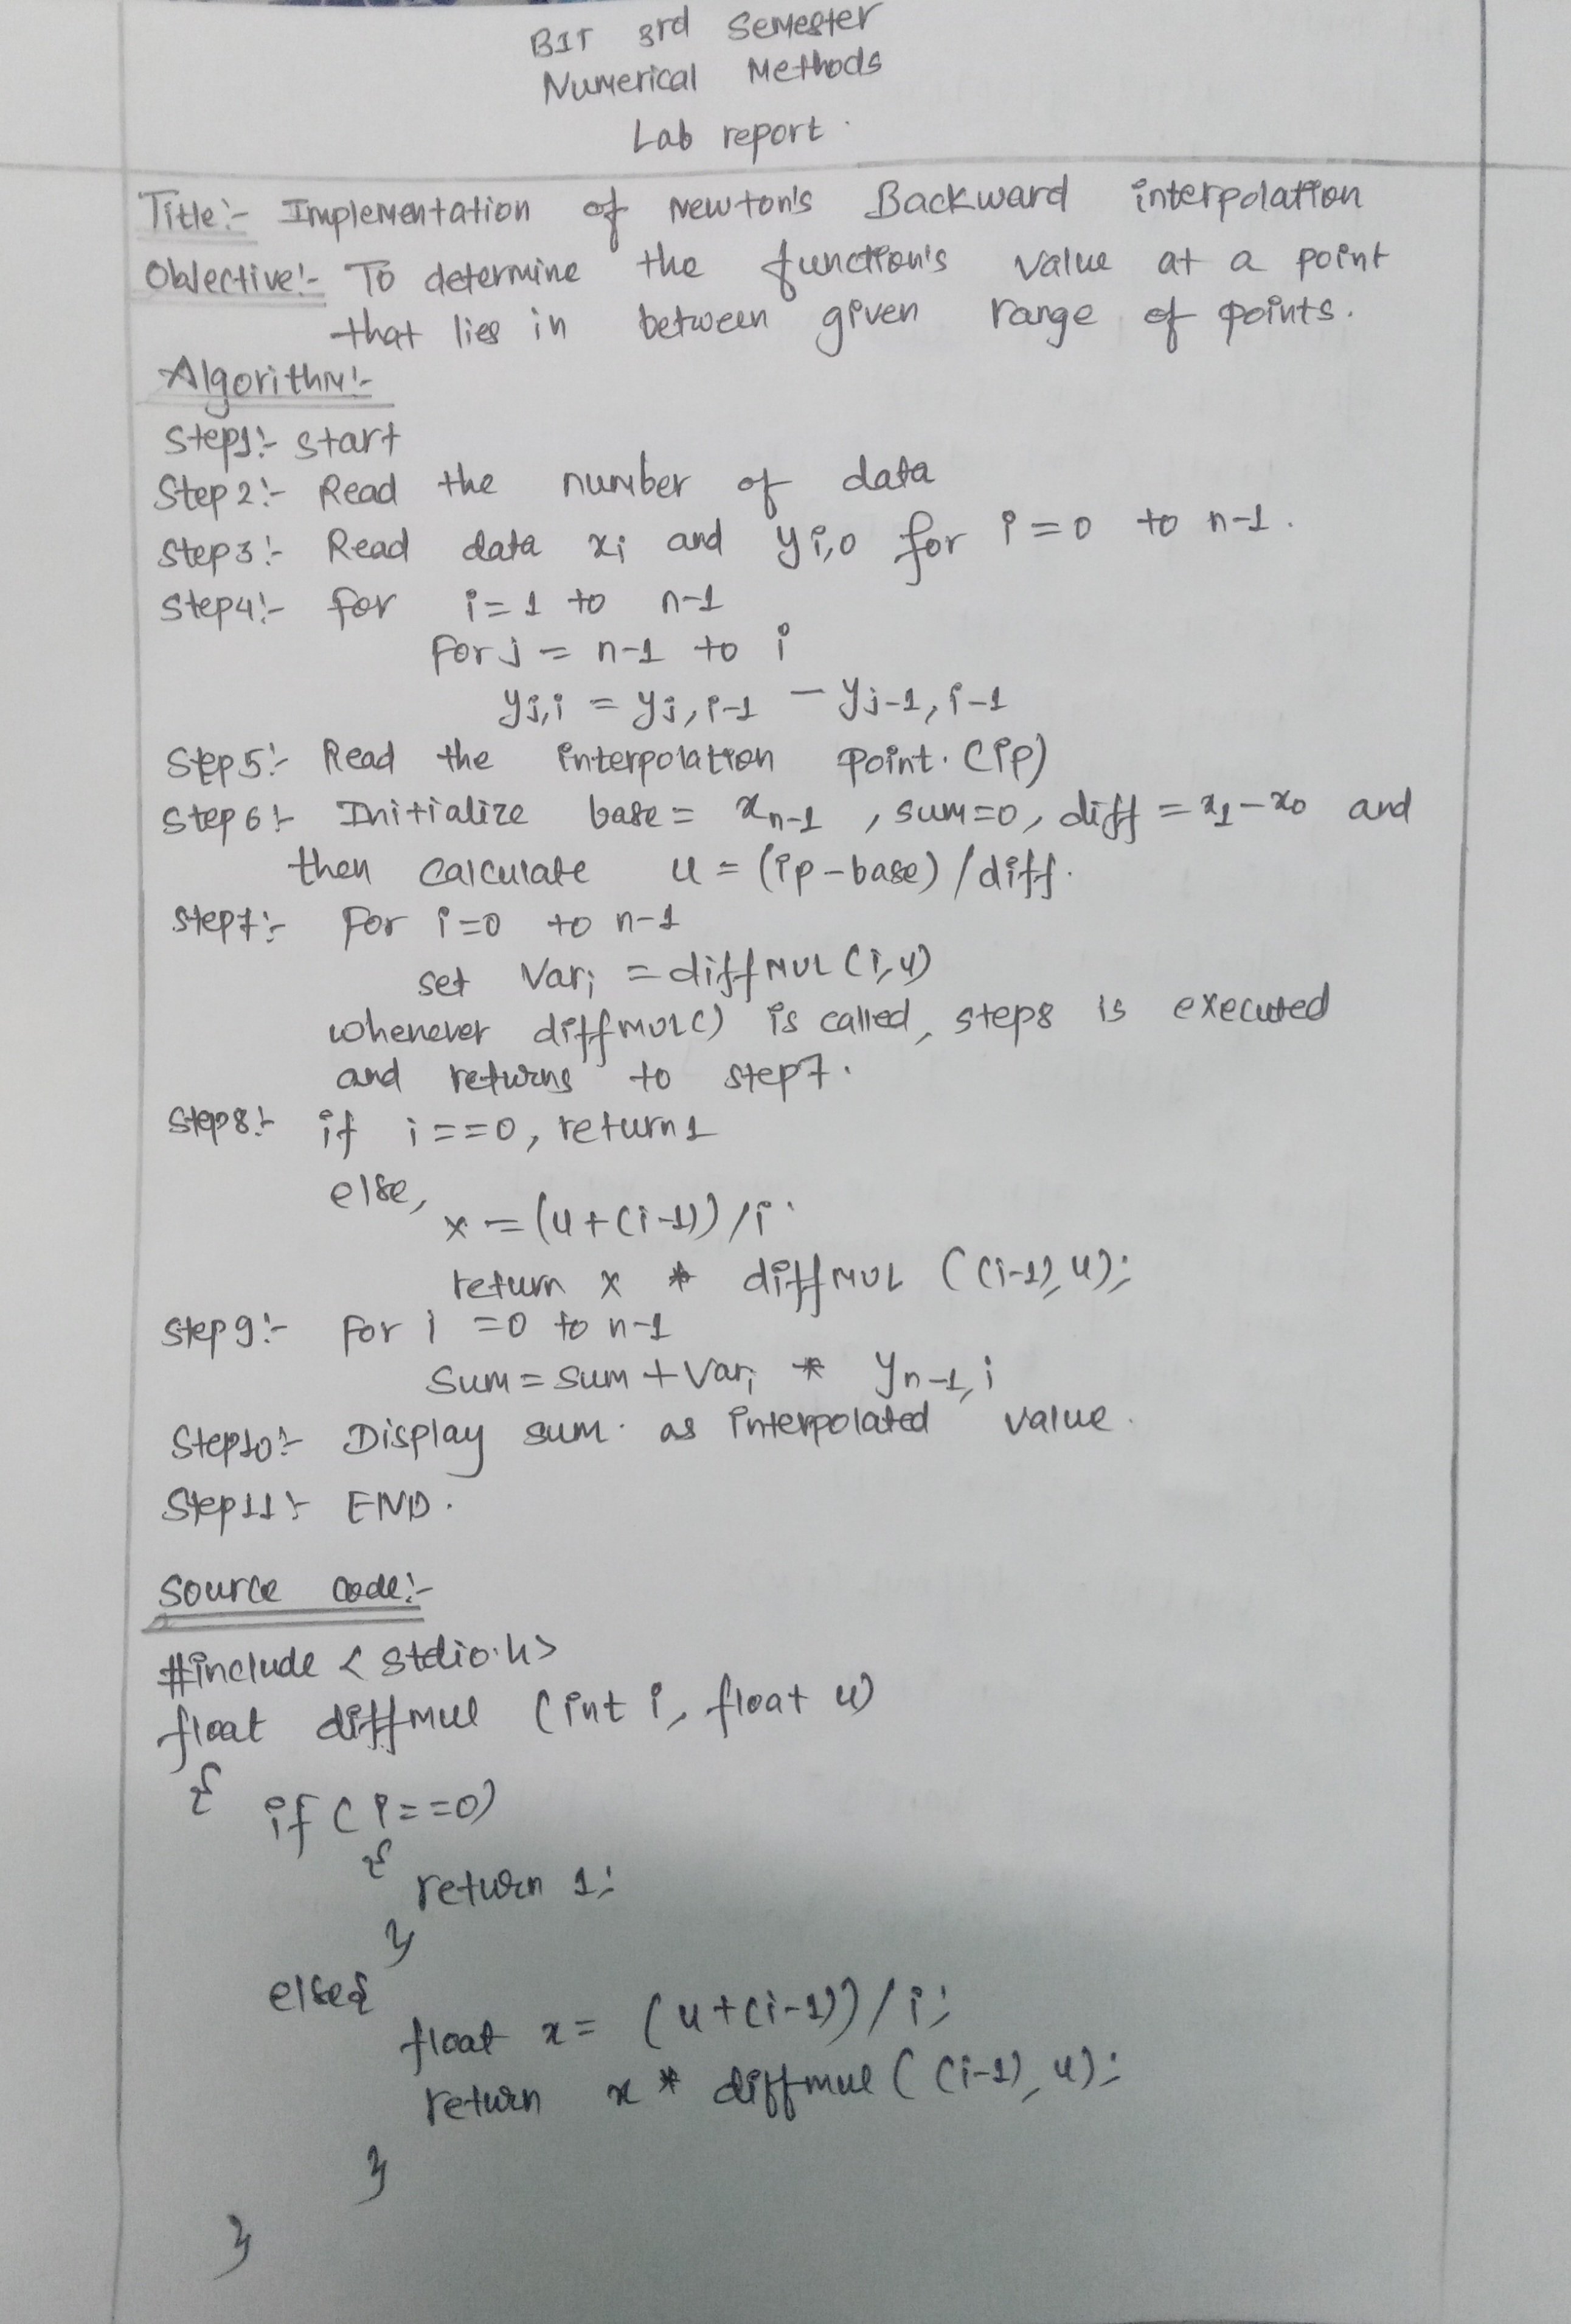 BIT 3rd Semester
Numerical Methods
Lab report.
Title:- Implementation of Newton's Backward interpolation
Objective:- To determine the function's value at a point
that lies in between given range of points.
Algorithm:-
Step1:- start
Step 2:- Read the number of data
Step3:- Read data xi and yi,0 for i=0 to n-1.
Step4:- for i=1 to n-1
For j = n-1 to i
yj,i = yj,i-1 - yj-1,i-1
Step5:- Read the interpolation point. (ip)
Step 6:- Initialize base = xn-1, sum=0, diff = x1-x0 and
then calculate u = (ip-base)/diff.
Step7:- For i=0 to n-1
set Vari = diffMUL(i,u)
whenever diffMUL() is called, step8 is executed
and returns to step7.
Step8:- if i==0, return 1
else,
x = (u+(i-1))/i.
return x * diffMUL ((i-1),u);
Step 9:- For i =0 to n-1
Sum = sum + Vari * yn-1,i
Step10:- Display sum. as interpolated value.
Step11:- END.
Source code:-
#include <stdio.h>
float diffmul (int i, float u)
{
if (i==0)
{
return 1;
}
else{
float x = (u+(i-1))/i;
return x * diffmul ((i-1), u);
}
}